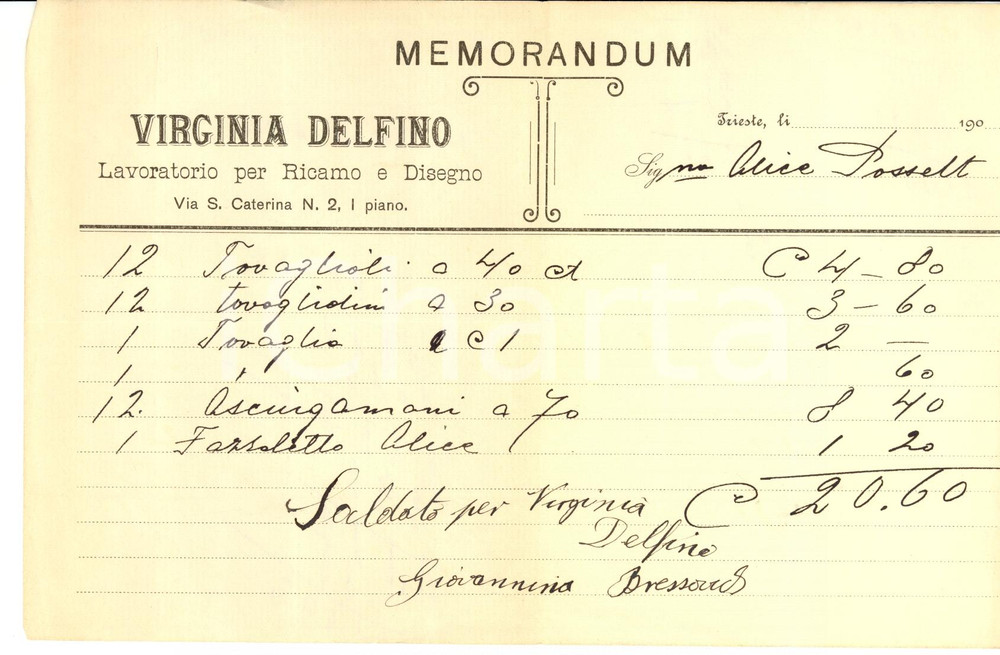 MEMORANDUM
VIRGINIA DELFINO
Lavoratorio per Ricamo e Disegno
Via S. Caterina N. 2, I piano.
Trieste, li 190
Signa Alice Posselt
12 Tovaglioli a 40 ct C 4 – 80
12 tovagliolini a 30 3 – 60
1 Tovaglia a C 1 2 –
1 " 60
12. Asciugamani a 70 8 40
1 Fazzoletto Alice 1 20
C 20.60
Saldato per Virginia
Delfino
Giovannina
charta